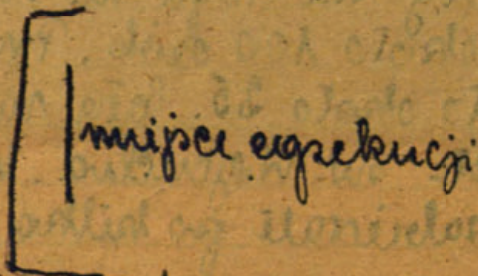 miejsce egzekucji